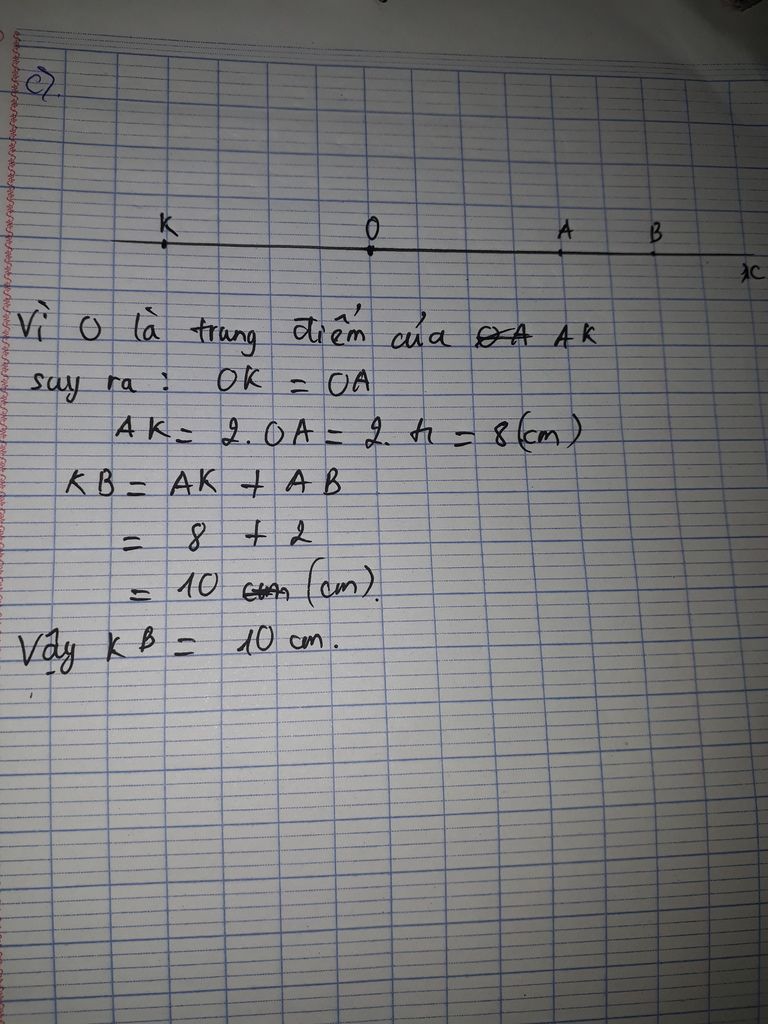 c).
K O A B
x
Vì O là trung điểm của AK
suy ra : OK = OA
AK = 2. OA = 2. 4 = 8 (cm)
KB = AK + AB
= 8 + 2
= 10 (cm).
Vậy KB = 10 cm.